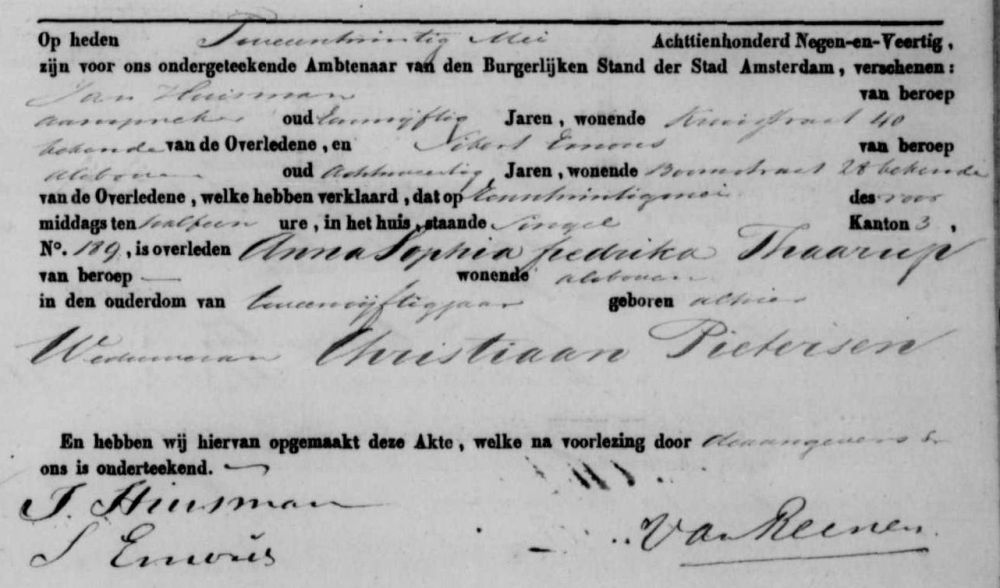 Op heden Tweeentwintig Mei Achttienhonderd Negen-en-Veertig,
zijn voor ons ondergeteekende Ambtenaar van den Burgerlijken Stand der Stad Amsterdam, verschenen:
Jan Huisman van beroep
aanspreker oud Eenenvijftig Jaren, wonende Kruisstraat 40
bekende van de Overledene, en Sibert Emous van beroep
alsboven oud Achtenveertig Jaren, wonende Boomstraat 28 bekende
van de Overledene, welke hebben verklaard, dat op Eenentwintig mei des voor
middags ten half een ure, in het huis, staande Singel Kanton 3,
No. 189, is overleden Anna Sophia fredrika Thaarup
van beroep — wonende alsboven
in den ouderdom van Tweeenvijftig jaar geboren alhier
Weduwe van Christiaan Pietersen
En hebben wij hiervan opgemaakt deze Akte, welke na voorlezing door de aangevers &
ons is onderteekend.
J. Huisman
S Emous
Van Reenen